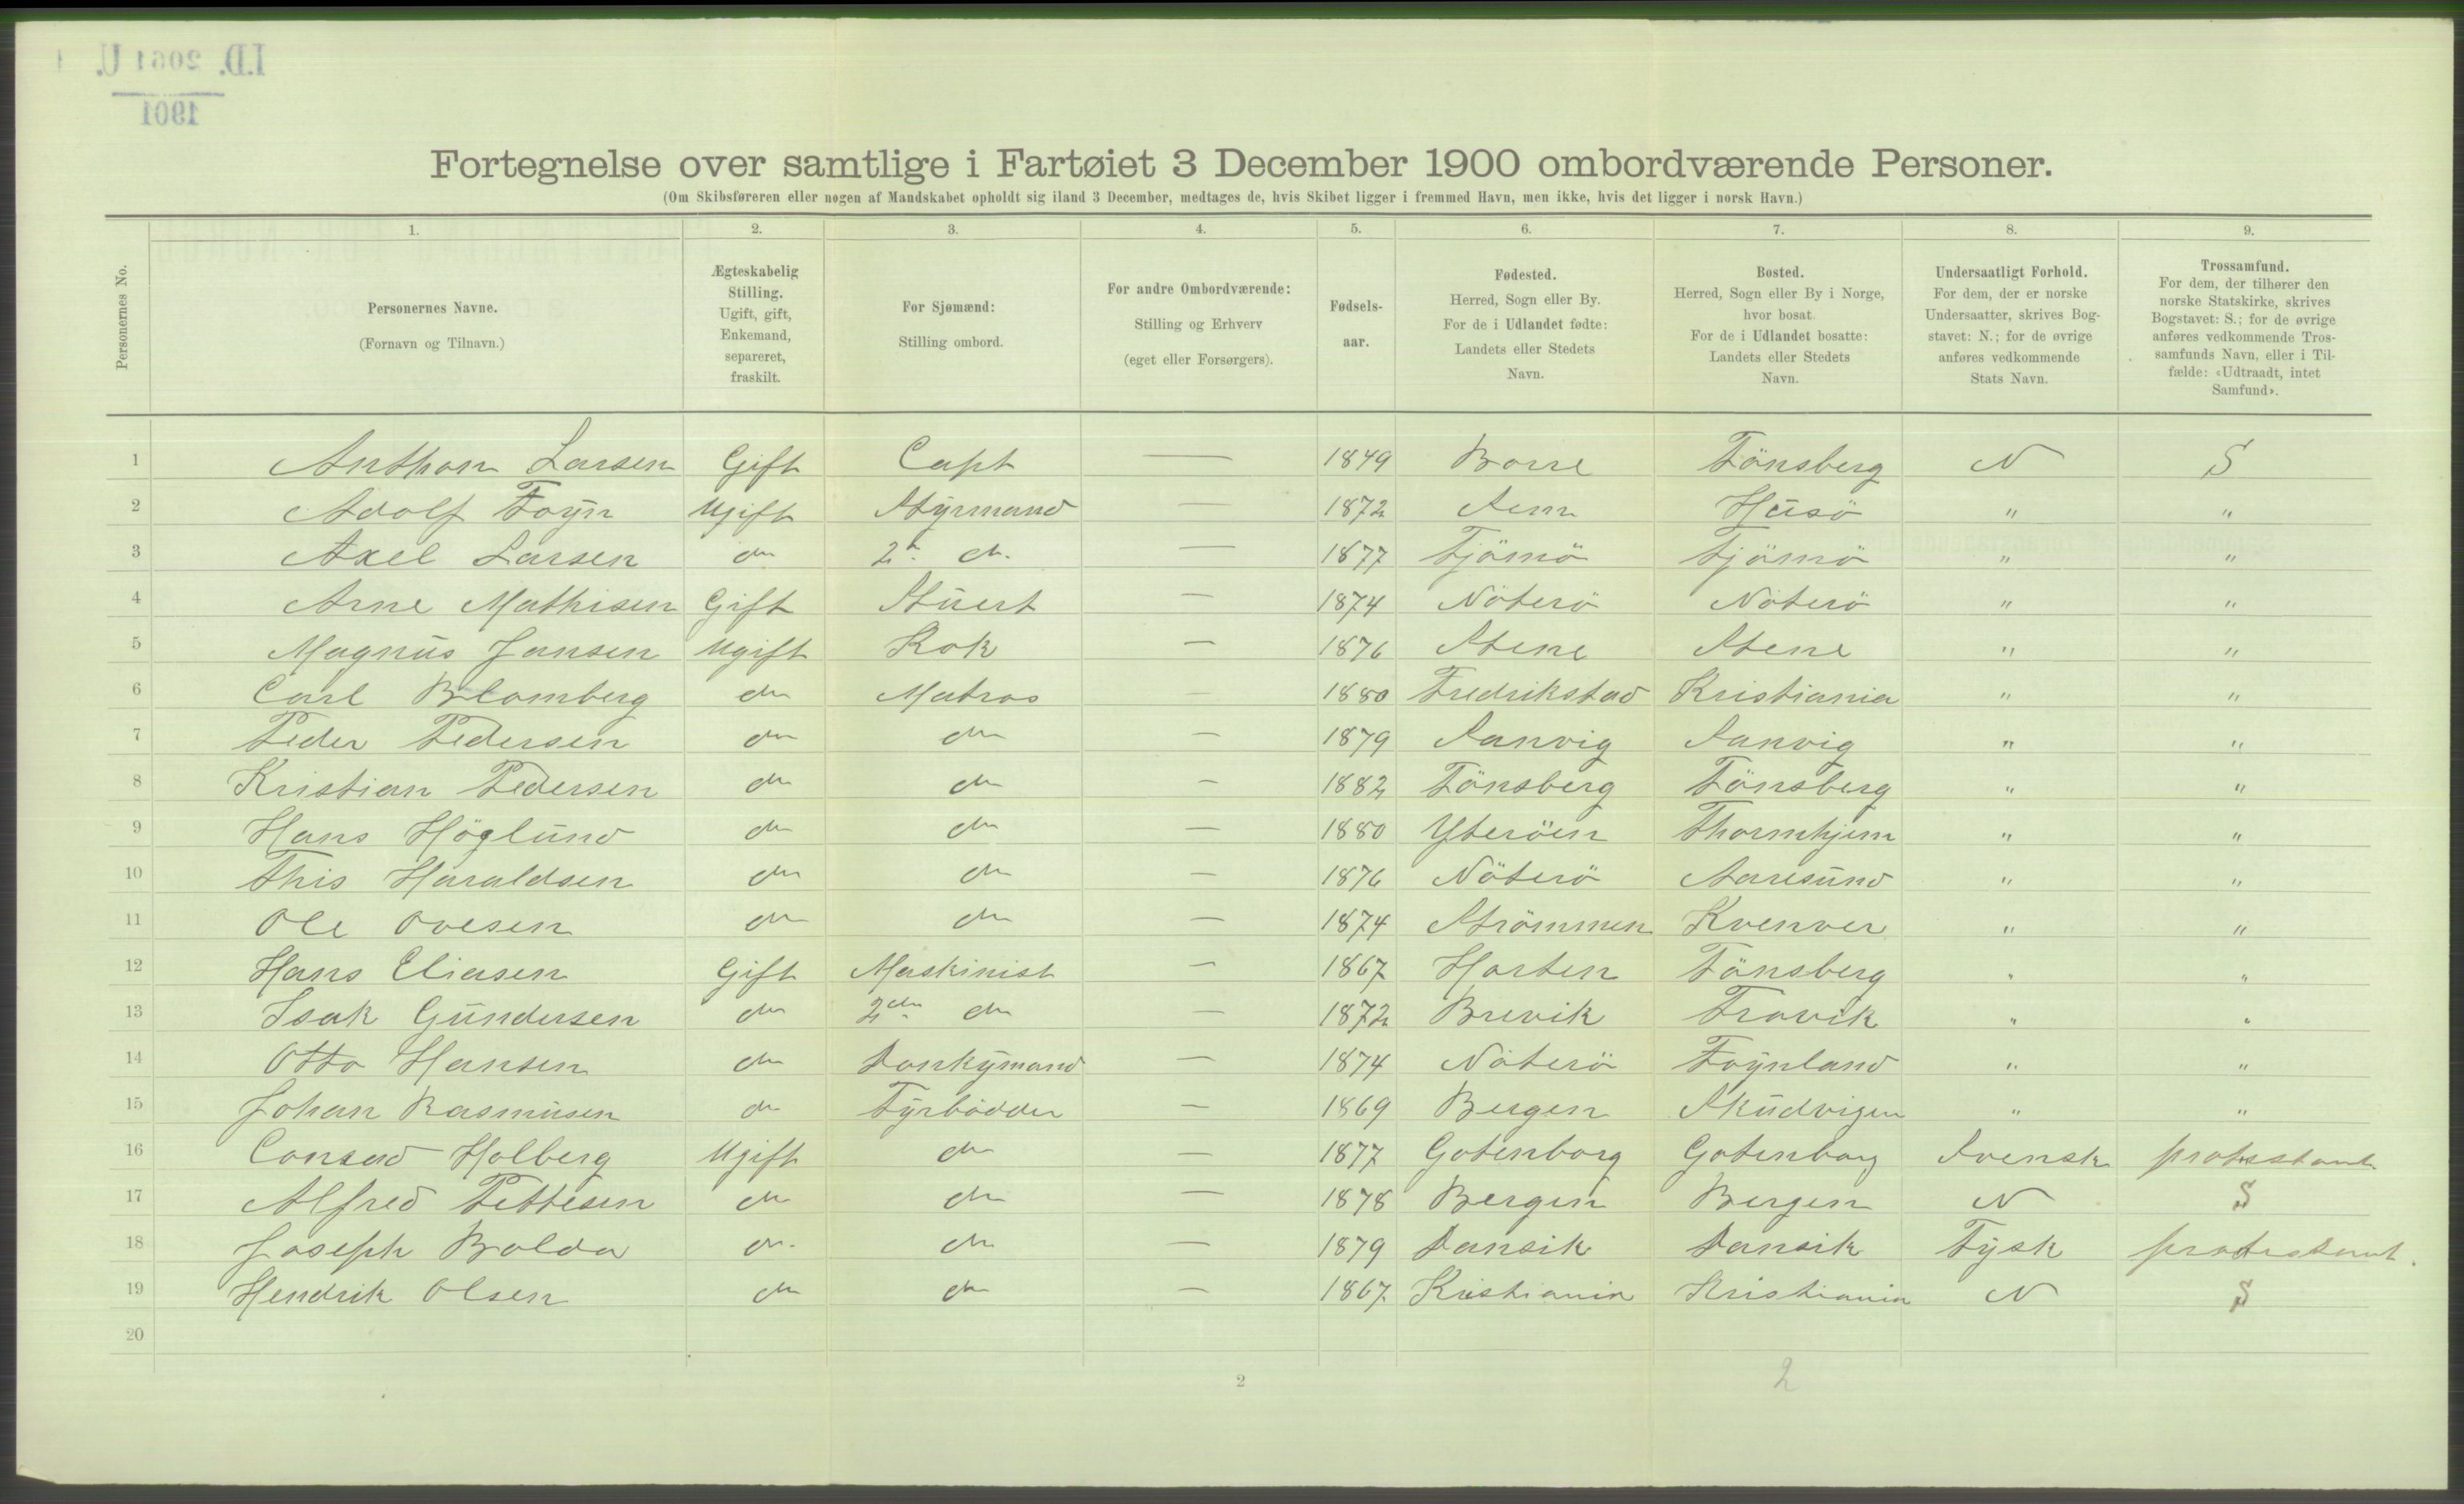 I.D. 2061 U.
1901
Fortegnelse over samtlige i Fartøiet 3 December 1900 ombordværende Personer.
(Om Skibsføreren eller nogen af Mandskabet opholdt sig iland 3 December, medtages de, hvis Skibet ligger i fremmed Havn, men ikke, hvis det ligger i norsk Havn.)
Personernes No.
1. 2. 3. 4. 5. 6. 7. 8. 9.
Personernes Navne.
(Fornavn og Tilnavn.)
Ægteskabelig
Stilling.
Ugift, gift,
Enkemand,
separeret,
fraskilt.
For Sjømænd:
Stilling ombord.
For andre Ombordværende:
Stilling og Erhverv
(eget eller Forsørgers).
Fødsels-
aar.
Fødested.
Herred, Sogn eller By.
For de i Udlandet fødte:
Landets eller Stedets
Navn.
Bosted.
Herred, Sogn eller By i Norge,
hvor bosat.
For de i Udlandet bosatte:
Landets eller Stedets
Navn.
Undersaatligt Forhold.
For dem, der er norske
Undersaatter, skrives Bog-
stavet: N.; for de øvrige
anføres vedkommende
Stats Navn.
Trossamfund.
For dem, der tilhører den
norske Statskirke, skrives
Bogstavet: S.; for de øvrige
anføres vedkommende Tros-
samfunds Navn, eller i Til-
fælde: «Udtraadt, intet
Samfund».
1 Anthon Larsen Gift Capt — 1849 Borre Tönsberg N S
2 Adolf Foyn Ugift Styrmand — 1872 Sem Husö " "
3 Axel Larsen do 2n. do. — 1877 Tjömö Tjömö " "
4 Arne Mathisen Gift Stuert — 1874 Nöterö Nöterö " "
5 Magnus Jansen Ugift Kok — 1876 Stene Stene " "
6 Carl Blomberg do Matros — 1880 Fredrikstad Kristiania " "
7 Peder Pedersen do do — 1879 Sanvig Sanvig " "
8 Kristian Pedersen do do — 1882 Tönsberg Tönsberg " "
9 Hans Höglund do do — 1880 Yteröen Thornhjem " "
10 This Haraldsen do do — 1876 Nöterö Aaresund " "
11 Ole Ovesen do do — 1874 Strömmen Kvenver " "
12 Hans Eliasen Gift Maskinist — 1867 Horten Tönsberg " "
13 Isak Gundersen do 2den do — 1872 Brevik Travik " "
14 Otto Hansen do Donkymand — 1874 Nöterö Foynland " "
15 Johan Rasmusen do Fyrbödder — 1869 Bergen Skudvigen " "
16 Conrad Holberg Ugift do — 1877 Gotenborg Gotenborg Svensk protestant
17 Alfred Pettesen do do — 1878 Bergen Bergen N S
18 Joseph Bolda do. do — 1879 Dansik Dansik Tysk protestant.
19 Hendrik Olsen do do — 1867 Kristiania Kristiania N S
20
2 2